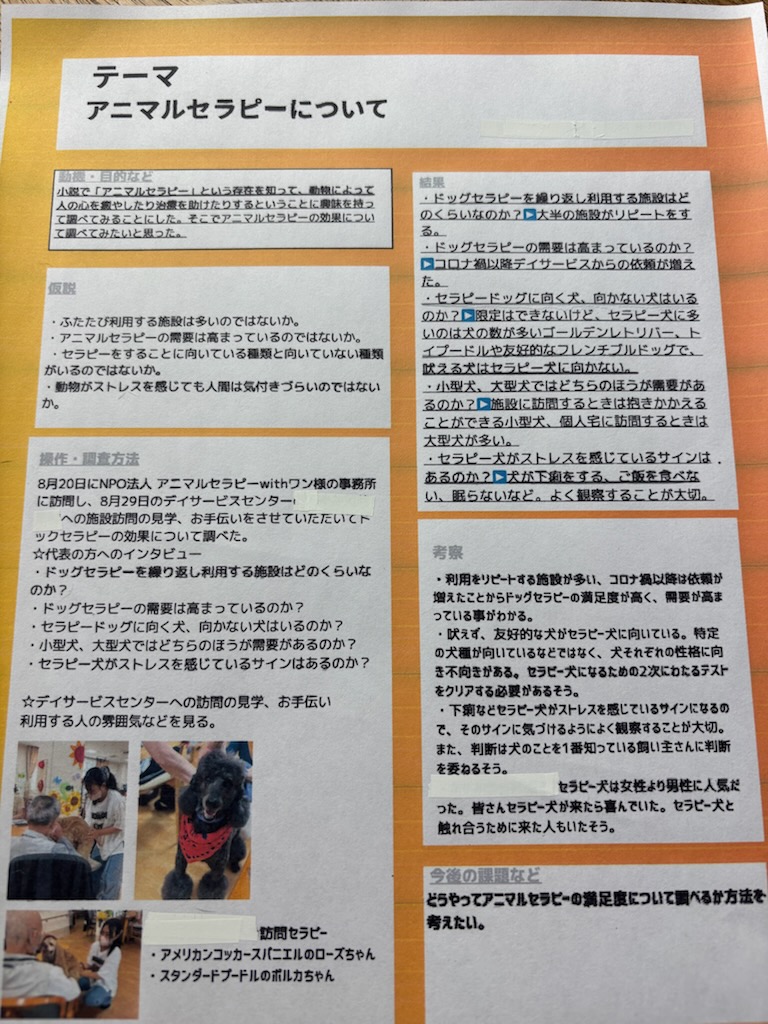 テーマ
アニマルセラピーについて
動機・目的など
小説で「アニマルセラピー」という存在を知って、動物によって
人の心を癒やしたり治療を助けたりするということに興味を持っ
て調べてみることにした。そこでアニマルセラピーの効果につい
て調べてみたいと思った。
仮説
・ふたたび利用する施設は多いのではないか。
・アニマルセラピーの需要は高まっているのではないか。
・セラピーをすることに向いている種類と向いていない種類
がいるのではないか。
・動物がストレスを感じても人間は気付きづらいのではない
か。
操作・調査方法
8月20日にNPO法人 アニマルセラピーwithワン様の事務所
に訪問し、8月29日のデイサービスセンター
への施設訪問の見学、お手伝いをさせていただいてド
ックセラピーの効果について調べた。
☆代表の方へのインタビュー
・ドッグセラピーを繰り返し利用する施設はどのくらいな
のか？
・ドッグセラピーの需要は高まっているのか？
・セラピードッグに向く犬、向かない犬はいるのか？
・小型犬、大型犬ではどちらのほうが需要があるのか？
・セラピー犬がストレスを感じているサインはあるのか？
☆デイサービスセンターへの訪問の見学、お手伝い
利用する人の雰囲気などを見る。
訪問セラピー
・アメリカンコッカースパニエルのローズちゃん
・スタンダードプードルのポルカちゃん
結果
・ドッグセラピーを繰り返し利用する施設はど
のくらいなのか？▶大半の施設がリピートをす
る。
・ドッグセラピーの需要は高まっているのか？
▶コロナ禍以降デイサービスからの依頼が増え
た。
・セラピードッグに向く犬、向かない犬はいる
のか？▶限定はできないけど、セラピー犬に多
いのは犬の数が多いゴールデンレトリバー、ト
イプードルや友好的なフレンチブルドッグで、
吠える犬はセラピー犬に向かない。
・小型犬、大型犬ではどちらのほうが需要があ
るのか？▶施設に訪問するときは抱きかかえる
ことができる小型犬、個人宅に訪問するときは
大型犬が多い。
・セラピー犬がストレスを感じているサインは
あるのか？▶犬が下痢をする、ご飯を食べな
い、眠らないなど。よく観察することが大切。
考察
・利用をリピートする施設が多い、コロナ禍以降は依頼が
増えたことからドッグセラピーの満足度が高く、需要が高ま
っている事がわかる。
・吠えず、友好的な犬がセラピー犬に向いている。特定
の犬種が向いているなどではなく、犬それぞれの性格に向
き不向きがある。セラピー犬になるための2次にわたるテスト
をクリアする必要があるそう。
・下痢などセラピー犬がストレスを感じているサインになるの
で、そのサインに気づけるようによく観察することが大切。
また、判断は犬のことを1番知っている飼い主さんに判断
を委ねるそう。
セラピー犬は女性より男性に人気だ
った。皆さんセラピー犬が来たら喜んでいた。セラピー犬と
触れ合うために来た人もいたそう。
今後の課題など
どうやってアニマルセラピーの満足度について調べるか方法を
考えたい。